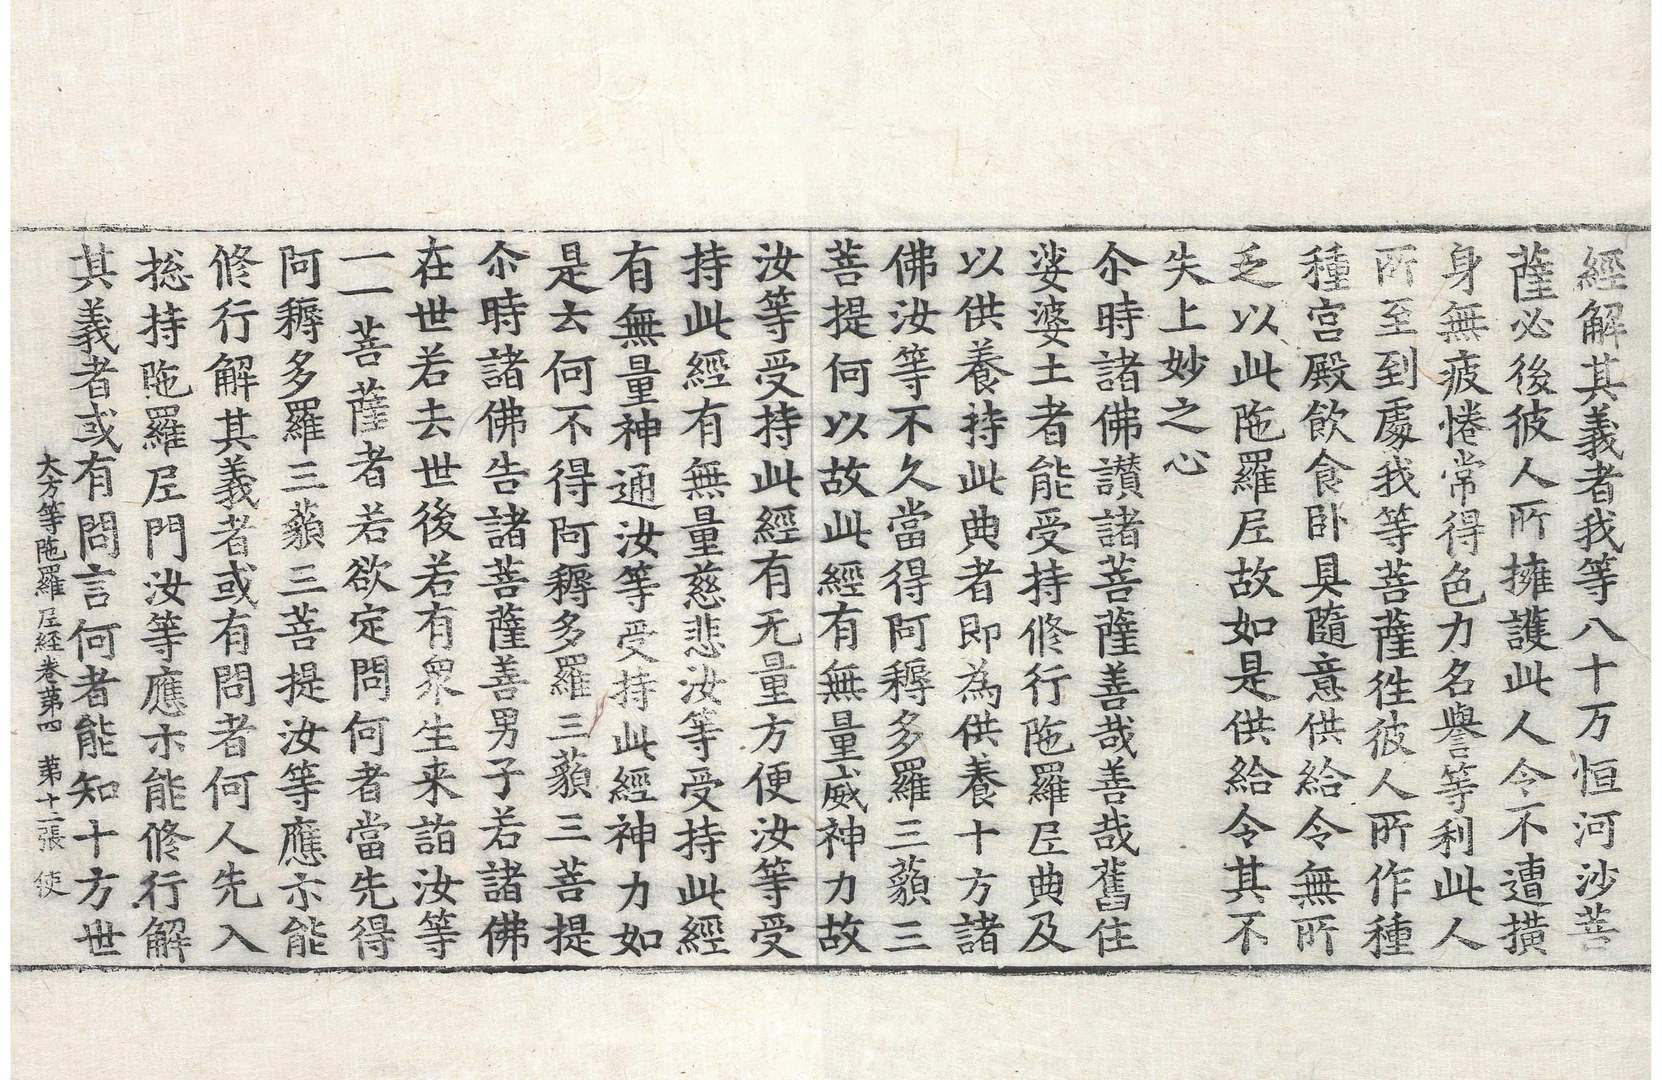 經解其義者我等八十万恒河沙菩
薩必後彼人所擁護此人令不遭撗
身無疲惓常得色力名譽等利此人
所至到處我等菩薩徃彼人所作種
種宮殿飮食卧具隨意供給令無所
乏以此陁羅𡰱故如是供給令其不
失上妙之心
尒時諸佛讃諸菩薩善哉善哉舊住
娑婆土者能受持修行陁羅𡰱典及
以供養持此典者即為供養十方諸
佛汝等不久當得阿耨多羅三藐三
菩提何以故此經有無量威神力故
汝等受持此經有无量方便汝等受
持此經有無量慈悲汝等受持此經
有無量神通汝等受持此經神力如
是去何不得阿耨多羅三藐三菩提
尒時諸佛告諸菩薩善男子若諸佛
在世若去世後若有衆生来詣汝等
一一菩薩者若欲定問何者當先得
阿耨多羅三藐三菩提汝等應亦能
修行解其義者或有問者何人先入
捴持陁羅𡰱門汝等應亦能修行解
其義者或有問言何者能知十方世
大方等陁羅𡰱經卷苐四 苐十二張 使